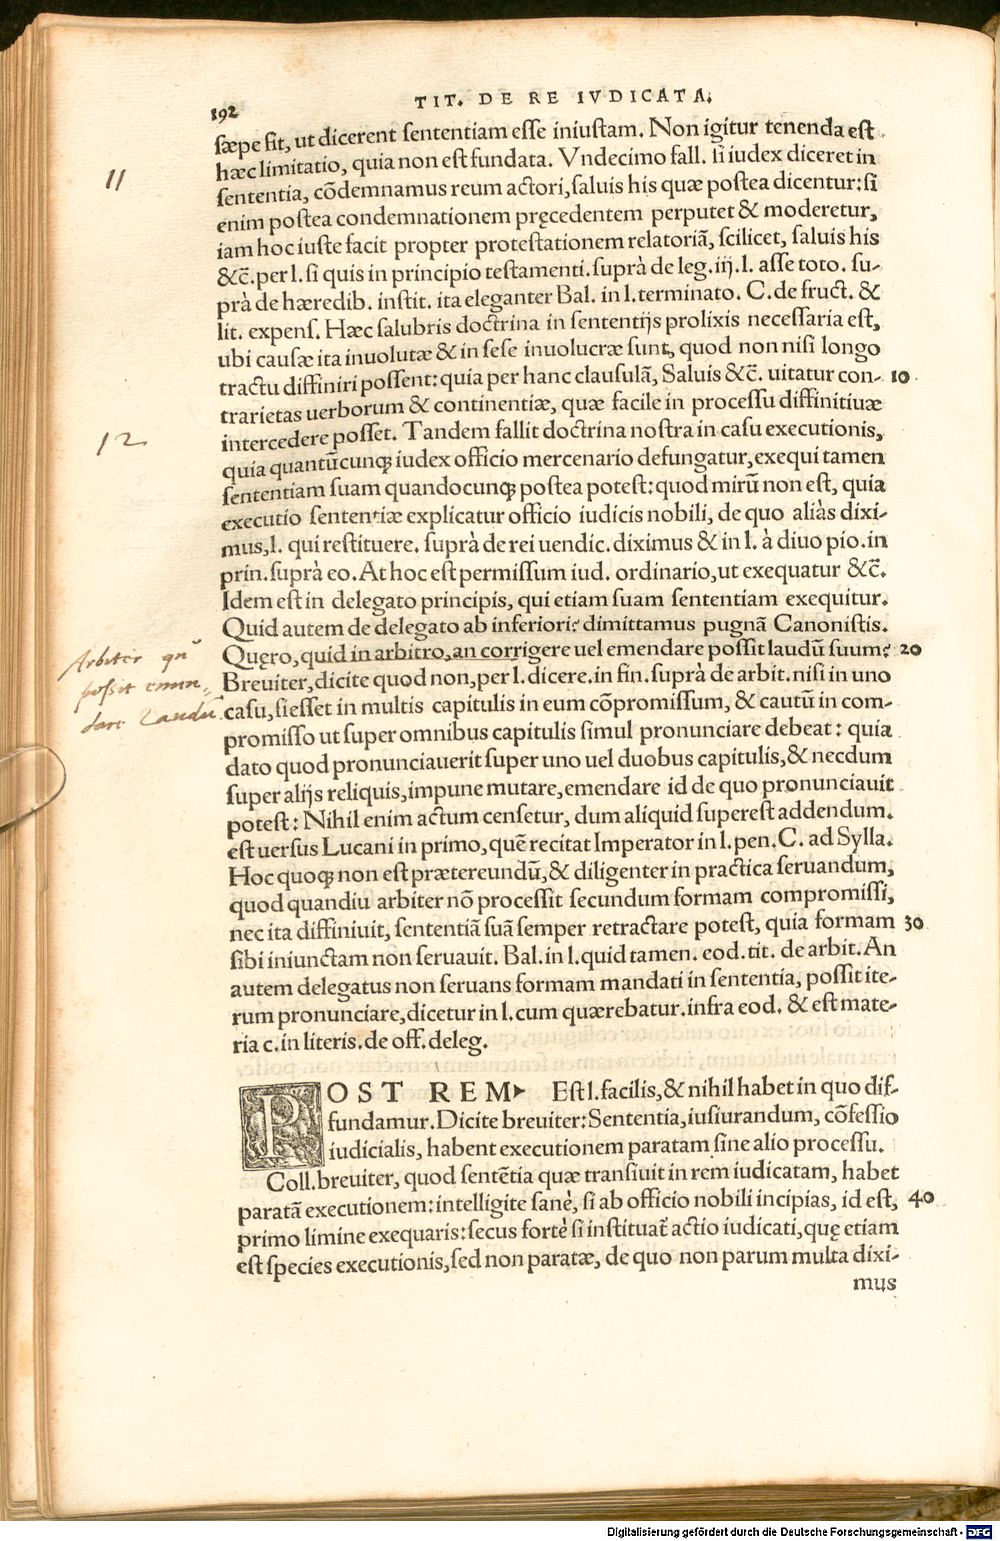 192
TIT. DE RE IVDICATA.
sæpe fit, ut dicerent sententiam esse iniustam. Non igitur tenenda est
hæc limitatio, quia non est fundata. Vndecimo fall. si iudex diceret in
11
sententia, cõdemnamus reum actori, saluis his quæ postea dicentur: si
enim postea condemnationem pręcedentem perputet & moderetur,
iam hoc iuste facit propter protestationem relatoriã, scilicet, saluis his
&c̃. per l. si quis in principio testamenti. suprà de leg. iij. l. asse toto. su-
prà de hæredib. instit. ita eleganter Bal. in l. terminato. C. de fruct. &
lit. expens. Hæc salubris doctrina in sententijs prolixis necessaria est,
ubi causæ ita inuolutæ & in sese inuolucræ sunt, quod non nisi longo
tractu diffiniri possent: quia per hanc clausulã, Saluis &c̃. uitatur con- 10
trarietas uerborum & continentiæ, quæ facile in processu diffinitiuæ
12
intercedere posset. Tandem fallit doctrina nostra in casu executionis,
quia quantũcunq; iudex officio mercenario defungatur, exequi tamen
sententiam suam quandocunq; postea potest: quod mirũ non est, quia
executio sententiæ explicatur officio iudicis nobili, de quo aliàs dixi-
mus, l. qui restituere. suprà de rei uendic. diximus & in l. à diuo pio. in
prin. suprà eo. At hoc est permissum iud. ordinario, ut exequatur &c̃.
Idem est in delegato principis, qui etiam suam sententiam exequitur.
Quid autem de delegato ab inferiori? dimittamus pugnã Canonistis.
Quęro, quid in arbitro, an corrigere uel emendare possit laudũ suum? 20
Arbiter qñ
possit emen-
dare Laudũ.
Breuiter, dicite quod non, per l. dicere. in fin. suprà de arbit. nisi in uno
casu, si esset in multis capitulis in eum cõpromissum, & cautũ in com-
promisso ut super omnibus capitulis simul pronunciare debeat: quia
dato quod pronunciauerit super uno uel duobus capitulis, & necdum
super alijs reliquis, impune mutare, emendare id de quo pronunciauit
potest: Nihil enim actum censetur, dum aliquid superest addendum.
est uersus Lucani in primo, quẽ recitat Imperator in l. pen. C. ad Sylla.
Hoc quoq; non est prætereundũ, & diligenter in practica seruandum,
quod quandiu arbiter nõ processit secundum formam compromissi,
nec ita diffiniuit, sententiã suã semper retractare potest, quia formam 30
sibi iniunctam non seruauit. Bal. in l. quid tamen. eod. tit. de arbit. An
autem delegatus non seruans formam mandati in sententia, possit ite-
rum pronunciare, dicetur in l. cum quærebatur. infra eod. & est mate-
ria c. in literis. de off. deleg.
POST REM Est l. facilis, & nihil habet in quo dif-
fundamur. Dicite breuiter: Sententia, iusiurandum, cõfessio
iudicialis, habent executionem paratam sine alio processu.
Coll. breuiter, quod sentẽtia quæ transiuit in rem iudicatam, habet
paratã executionem: intelligite sanè, si ab officio nobili incipias, id est, 40
primo limine exequaris: secus fortè si instituat̃ actio iudicati, quę etiam
est species executionis, sed non paratæ, de quo non parum multa dixi-
mus
Digitalisierung gefördert durch die Deutsche Forschungsgemeinschaft - DFG